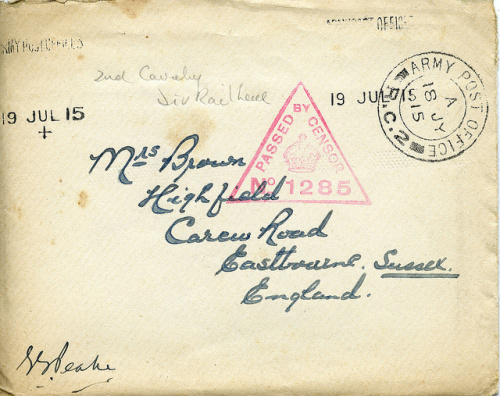 ARMY POST OFFICES
ARMY POST OFFICES
2nd Cavalry
Div Railhead
19 JUL 15
19 JUL 15
ARMY POST OFFICE
A
18 JY
15
R.C.2
PASSED BY CENSOR
No 1285
Mrs Brown
Highfield
Carew Road
Eastbourne. Sussex.
England.